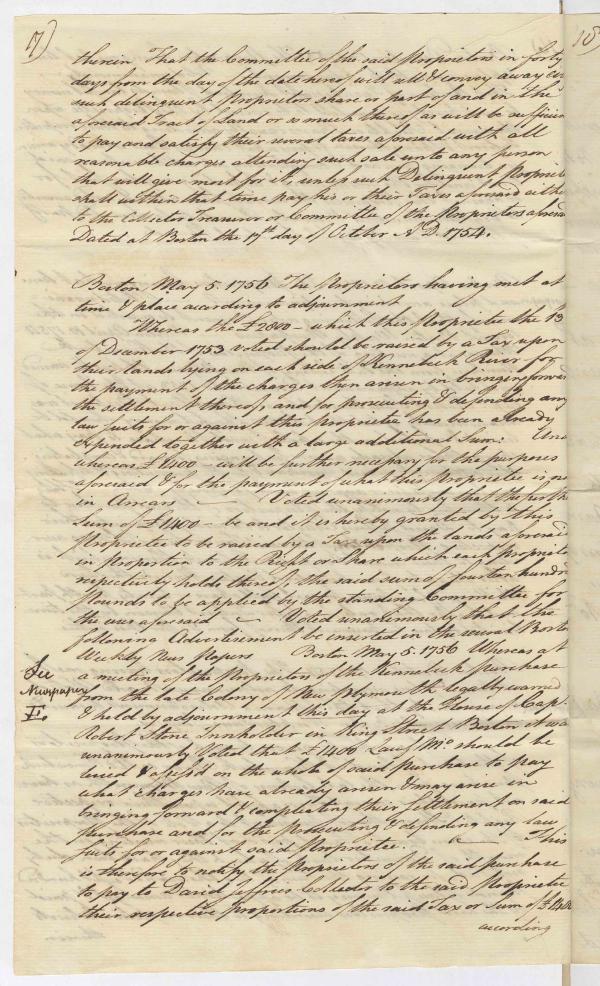 17)
therein That the Committee of the said Proprietors in forty
days from the day of the date hereof will sell & convey away
such delinquent Proprietors share or part of and in the
aforesaid Tract of Land or so much thereof as will be sufficien
to pay and satisfy their several taxes aforesaid with all
reasonable charges attending such sale unto any person
that will give most for it, unless such Delinquent Proprieto
shall within that time pay his or their Taxes aforesaid
to the Collector Treasurer or Committee of the Proprietors aforesaid
Dated at Boston the 17th day of October A D. 1754.
Boston May 5. 1756 The Proprietors having met at
time & place according to adjournment
Whereas the £2000 – which this Proprietee the 13
of December 1753 voted should be raised by a Tax upon
their lands lying on each side of Kennebeck River for
the payment of the charges then arisen in bringing forward
the settlement thereof, and for prosecuting & defending any
law suits for or against this Proprietee has been already
expended together with a large additional Sum: And
whereas £1400 – will be further necessary for the purposes
aforesaid & for the payment of what this Proprietee is
in Arrears – Voted unanimously that the further
Sum of £1400 – be and it is hereby granted by this
Proprietee to be raised by a Tax upon the lands aforesaid
in proportion to the Right or Share which each Proprieto
respectively holds thereof, the said sum of fourteen hundred
Pounds to be applied by the standing Committee for
the uses aforesaid – Voted unanimously that the
following Advertisement be inserted in the several Boston
Weekly News Papers Boston May 5. 1756 Whereas at
See
Newspaper
E.
a meeting of the Proprietors of the Kennebeck purchase
from the late Colony of New Plymouth legally warned
& held by adjournment this day at the House of Cap.
Robert Stone Innholder in King Street Boston it was
unanimously Voted that £1400 Lawf Mo should be
levied & assess'd on the whole of said purchase to pay
what charges have already arisen & may arise in
bringing forward & compleating their settlement on said
purchase and for the prosecuting & defending any law
suits for or against said Proprietee. – This
is therefore to notify the Proprietors of the said purchase
to pay to David Jeffries Collector to the said Proprietee
their respective proportions of the said Tax or Sum of £1400
according
18